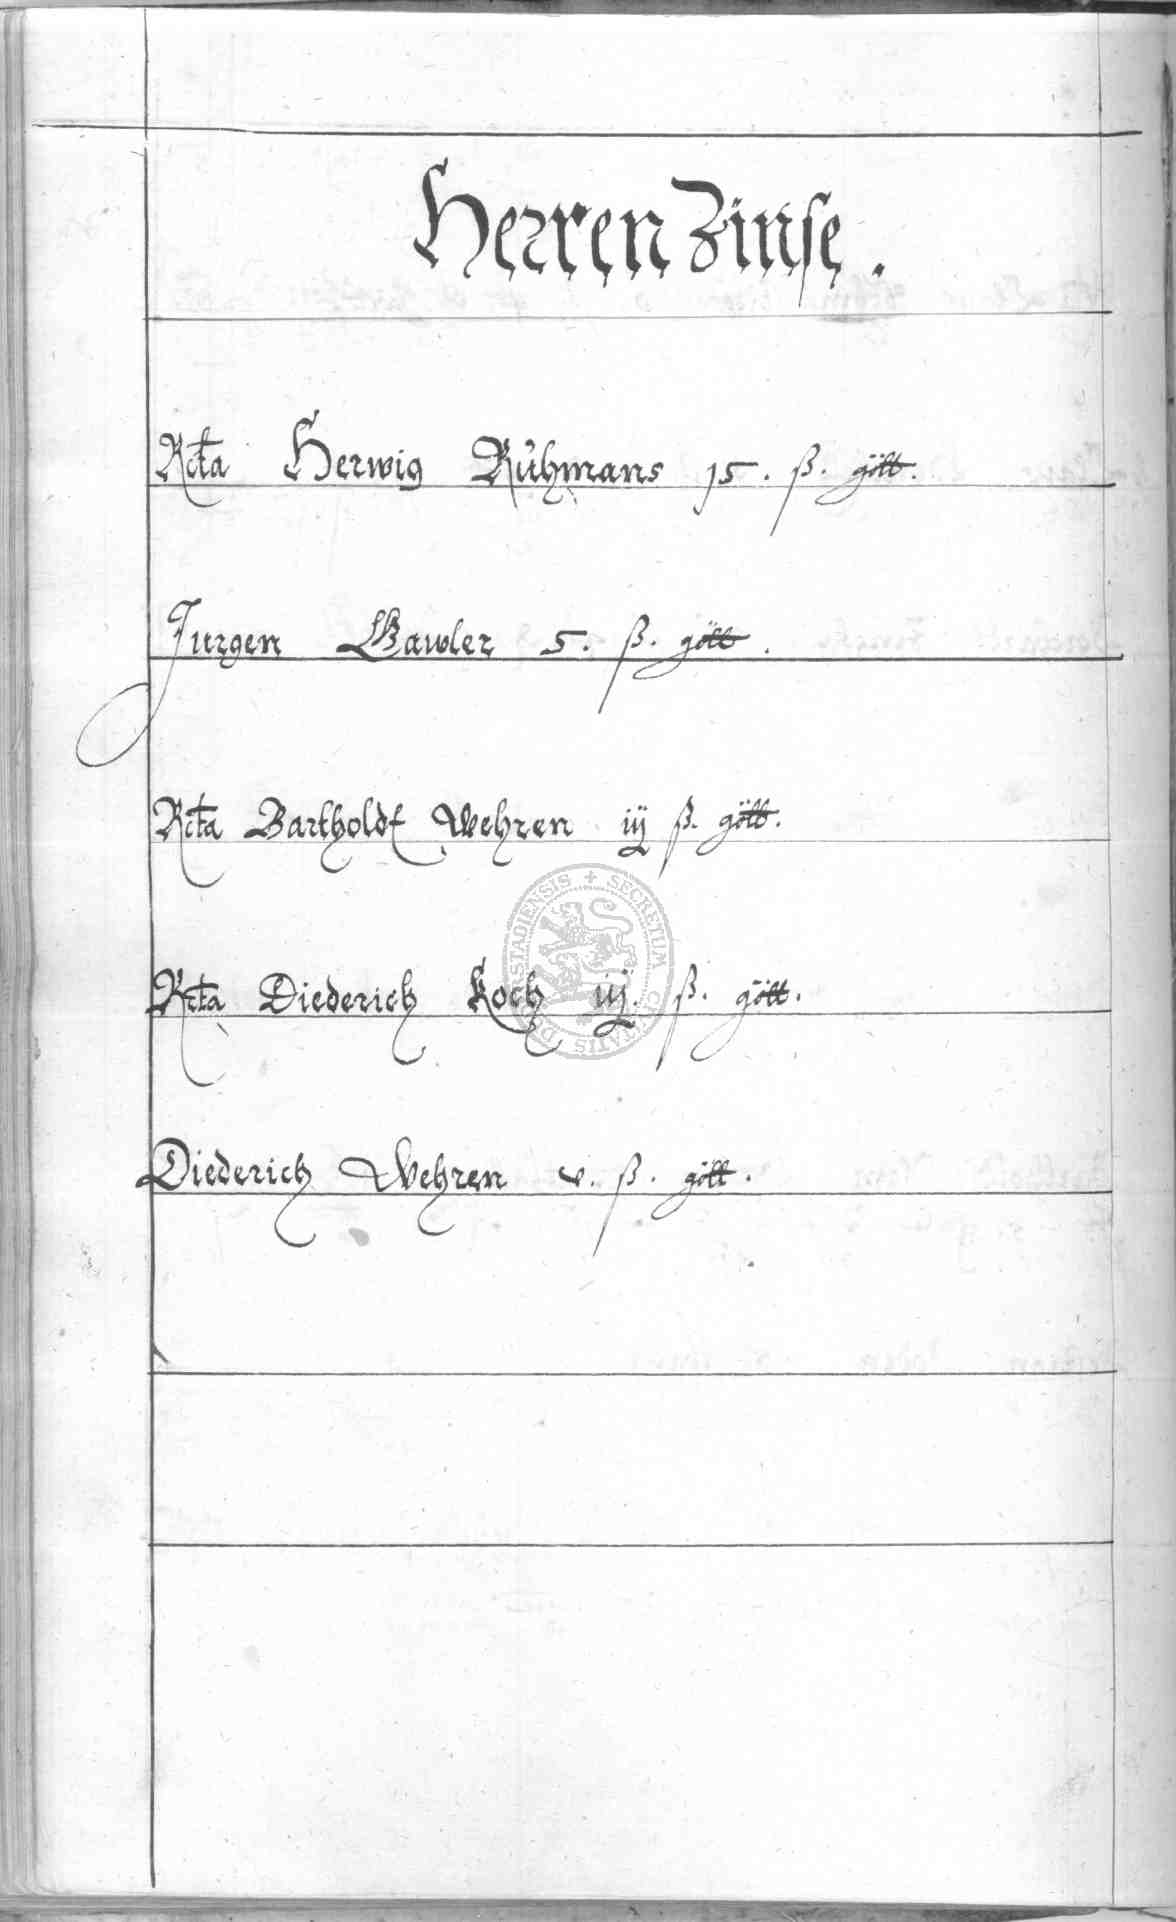 Herren Zinse.
Rcta Herwig Rühmans 15. ß. gött.
Jurgen Gawler 5. ß. gött.
Rcta Bartholdt Wehren iij ß. gött.
Rcta Diederich Koch iij. ß. gött.
SECRETUM CIVITATIS DUDERSTADIENSIS
Diederich Wehren v. ß. gött.